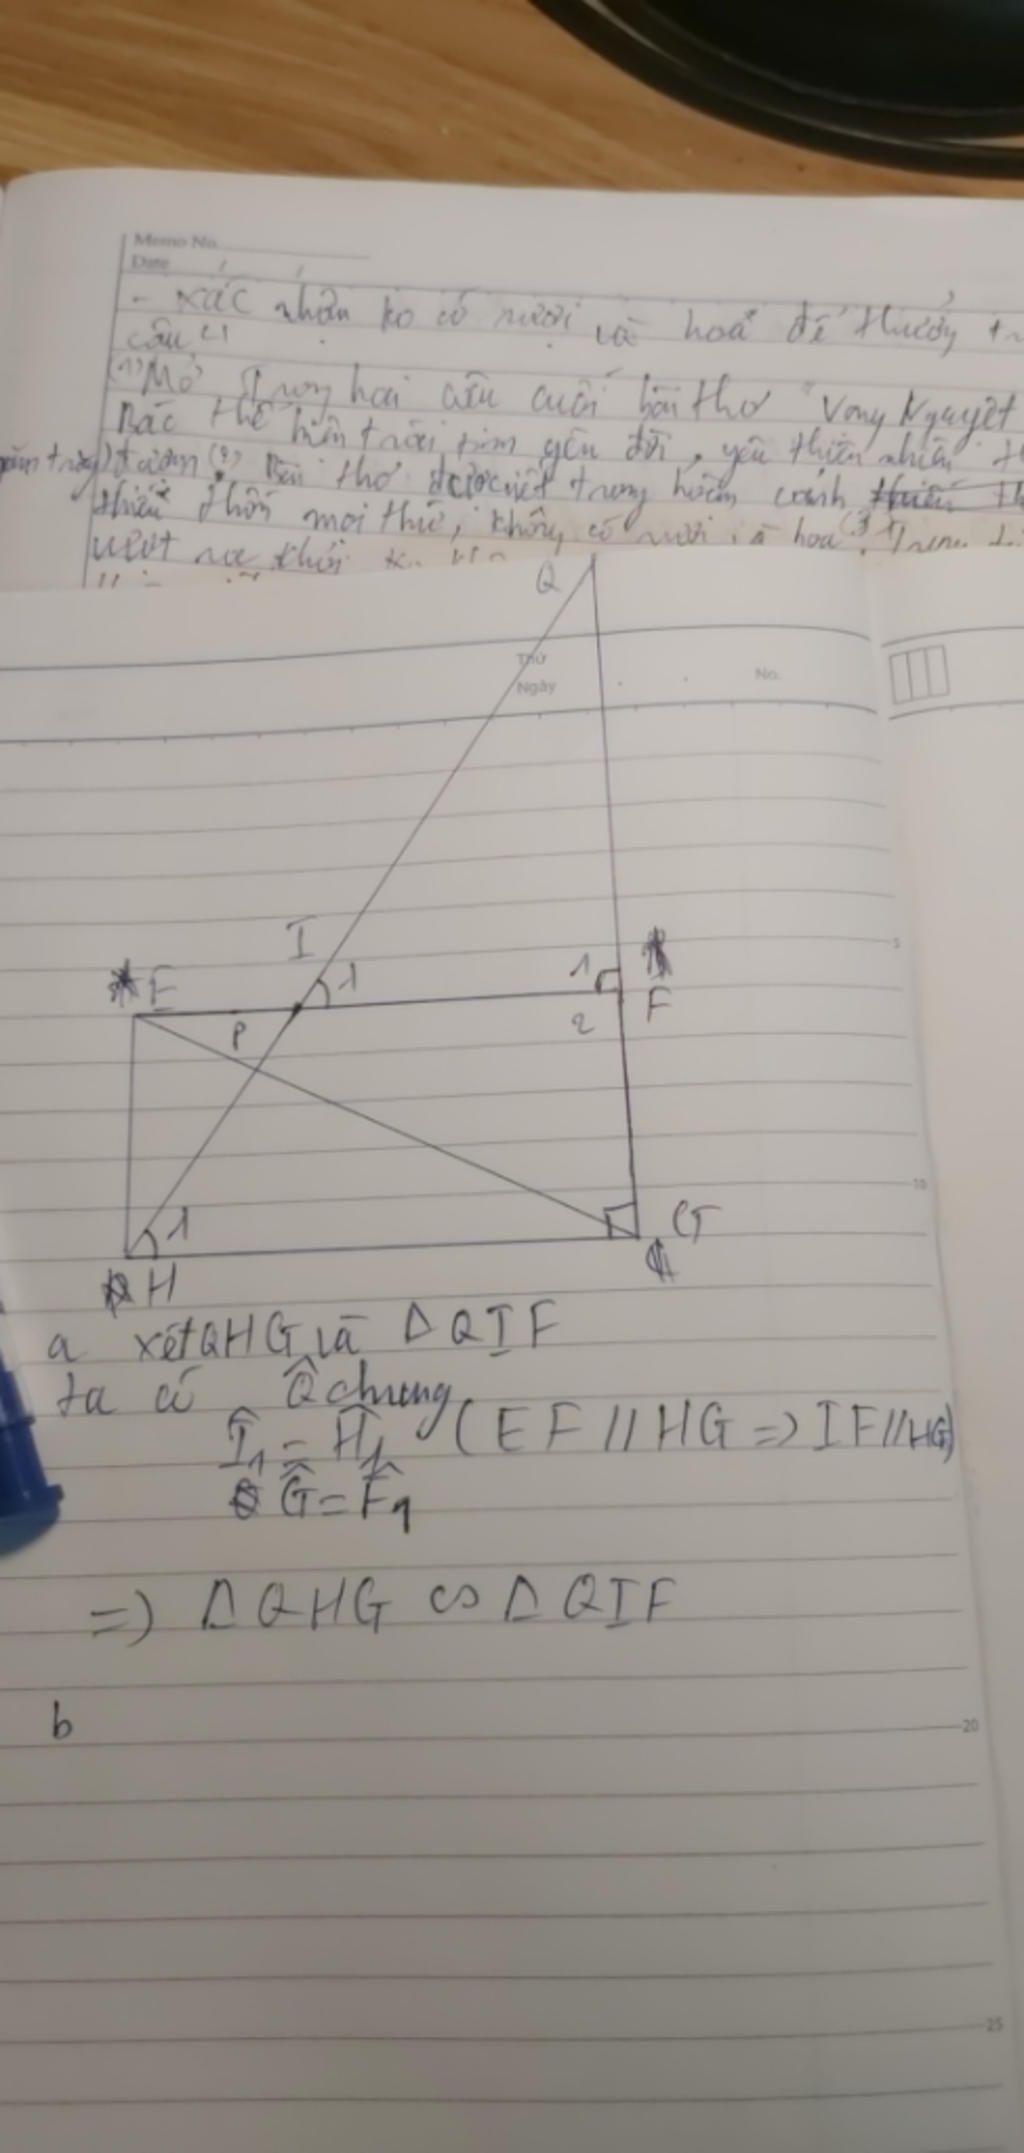 Memo No.
Date / /
- xác nhận ko có rượu và hoa để thưởng
câu 21
(1) Mở trong hai câu cuối bài thơ "Vọng Nguyệt
Bác thể hiện trái tim yêu đời, yêu thiên nhiên
(2) Bài thơ được viết trong hoàn cảnh
thiếu thốn mọi thứ, không có rượu và hoa. (3) Trong
vượt
Q
Thứ
Ngày
No.
I
E
1
1
F
P
2
5
10
1
G
H
a xét QHG và Δ QIF
ta có Q̂ chung
Î₁ = Ĥ₁ (EF // HG => IF // HG)
Ĝ = F̂₁
=) Δ QHG ∽ Δ QIF
b
20
25